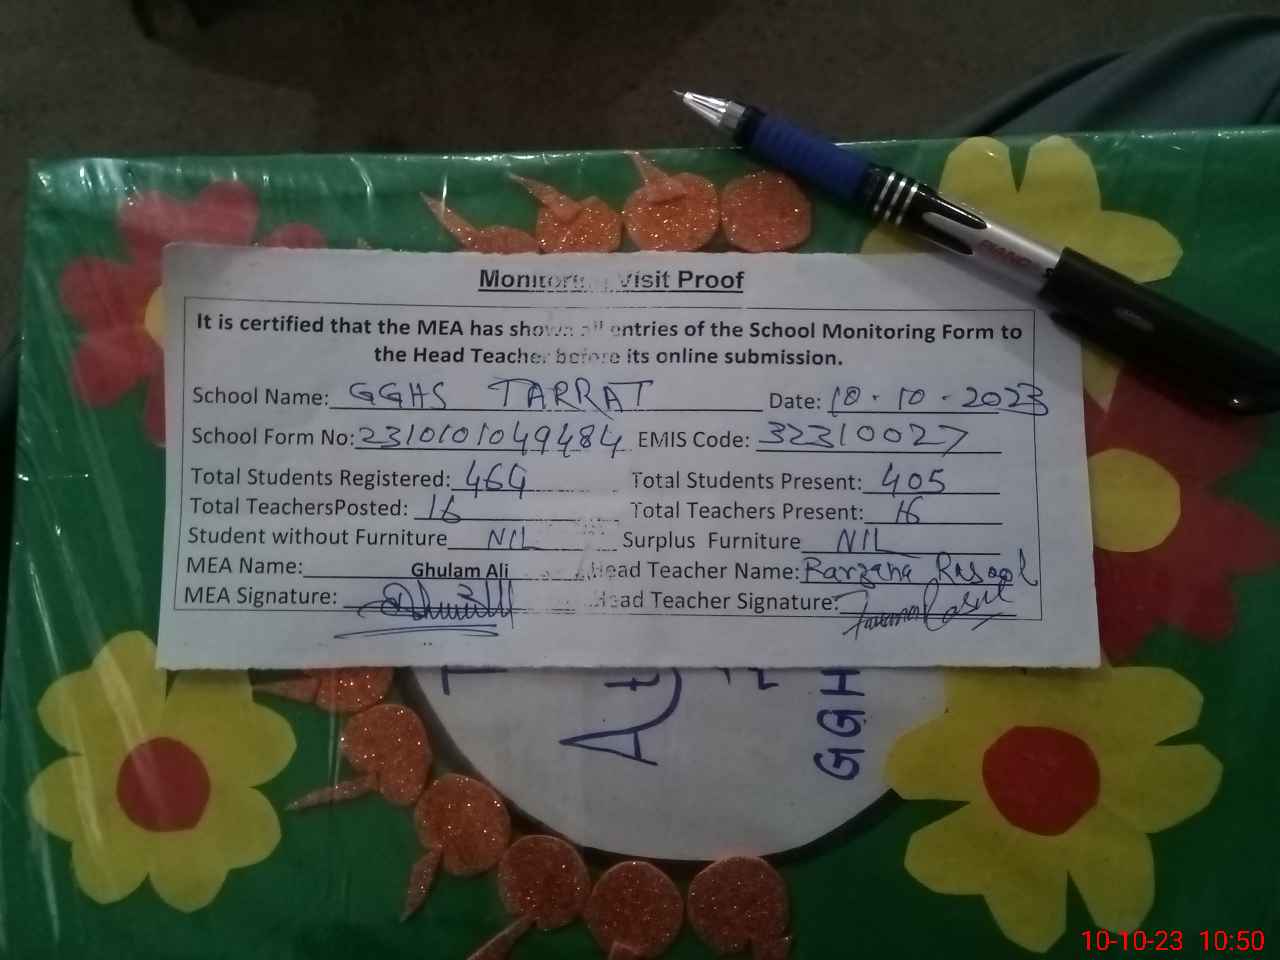 Monitoring Visit Proof
It is certified that the MEA has shown all entries of the School Monitoring Form to
the Head Teacher before its online submission.
School Name: GGHS TARRAT Date: 10.10.2023
School Form No: 2310101049484 EMIS Code: 32310027
Total Students Registered: 464 Total Students Present: 405
Total TeachersPosted: 16 Total Teachers Present: 16
Student without Furniture NIL Surplus Furniture NIL
MEA Name: Ghulam Ali Head Teacher Name: Farzana Rasool
MEA Signature: Head Teacher Signature:
GGH
10-10-23 10:50